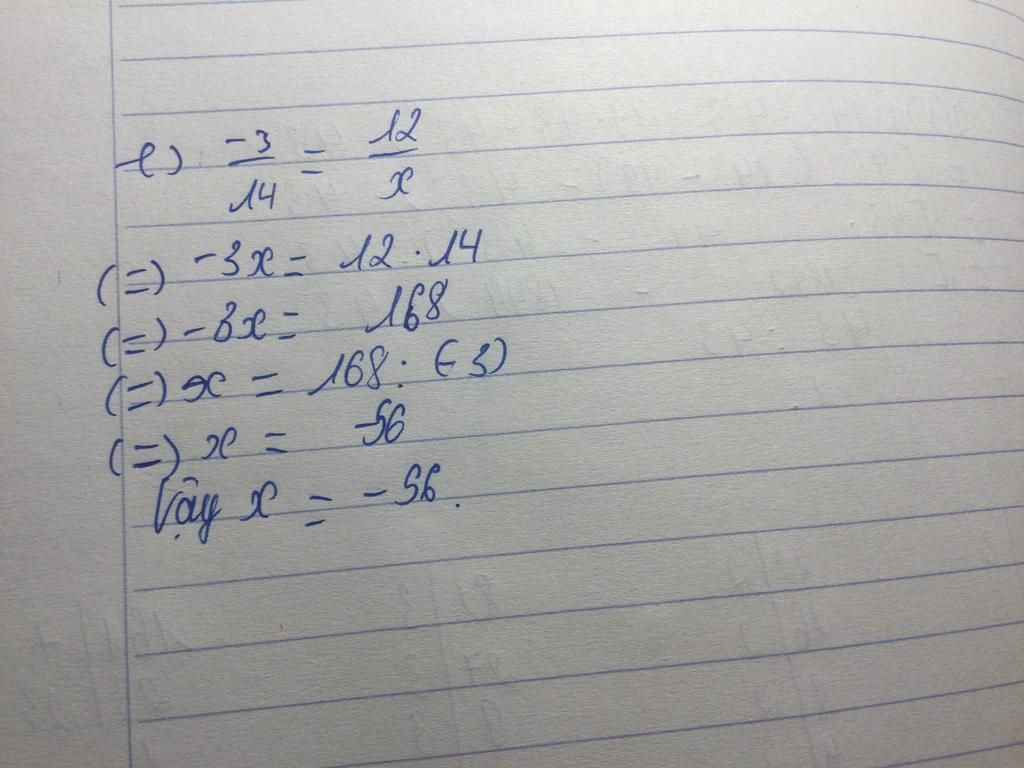 e) -3/14 = 12/x
(=) -3x = 12 . 14
(=) -3x = 168
(=) x = 168 : (-3)
(=) x = -56
Vậy x = -56.